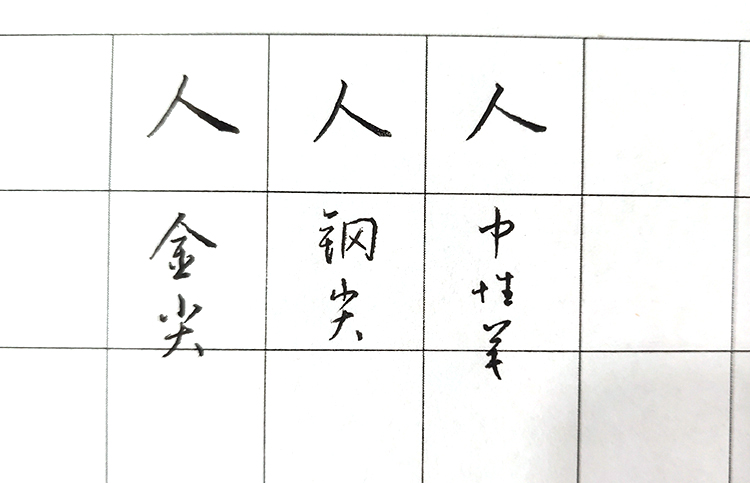 人 人 人
金尖 钢尖 中性笔